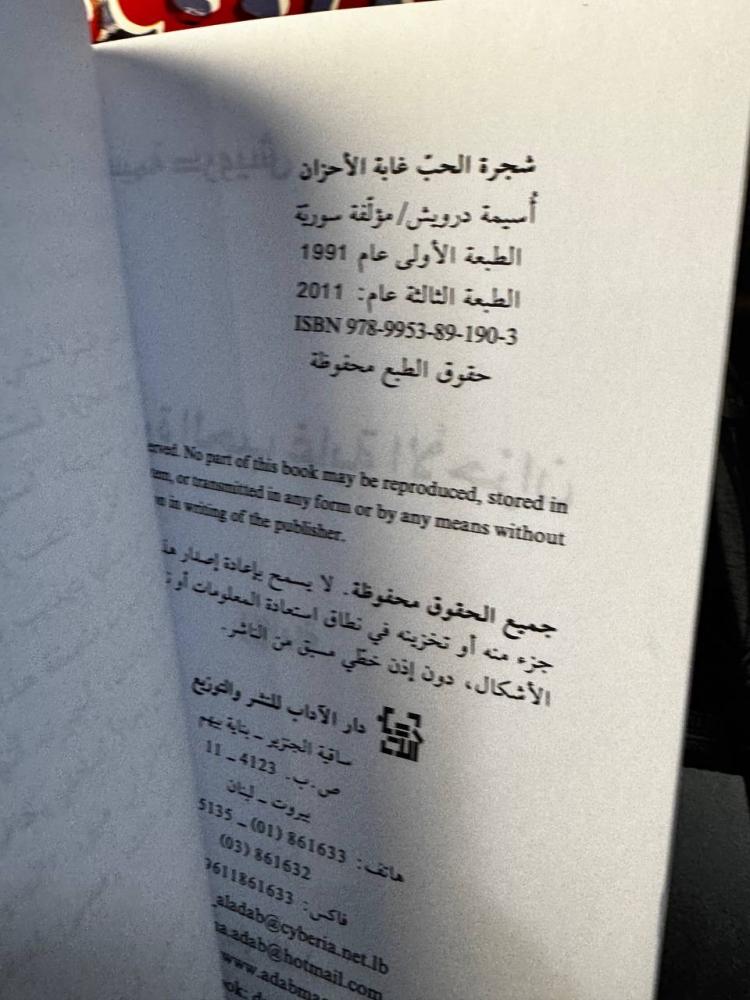 شجرة الحبّ غابة الأحزان
أُسيمة درويش/مؤلّفة سوريّة
الطبعة الأولى عام 1991
الطبعة الثالثة عام: 2011
ISBN 978-9953-89-190-3
حقوق الطبع محفوظة
erved. No part of this book may be reproduced, stored in
tem, or transmitted in any form or by any means without
n in writing of the publisher.
جميع الحقوق محفوظة. لا يسمح بإعادة إصدار هذ
جزء منه أو تخزينه في نطاق استعادة المعلومات أو ن
الأشكال، دون إذن خطّي مسبق من الناشر.
دار الآداب للنشر والتوزيع
ساقية الجنزير ـ بناية بيهم
ص.ب. 4123 ـ 11
بيروت ـ لبنان
هاتف: 861633 (01) ـ 5135
861632 (03)
فاكس: 9611861633
_aladab@cyberia.net.lb
ta.adab@hotmail.com
www.adabma
ok: d